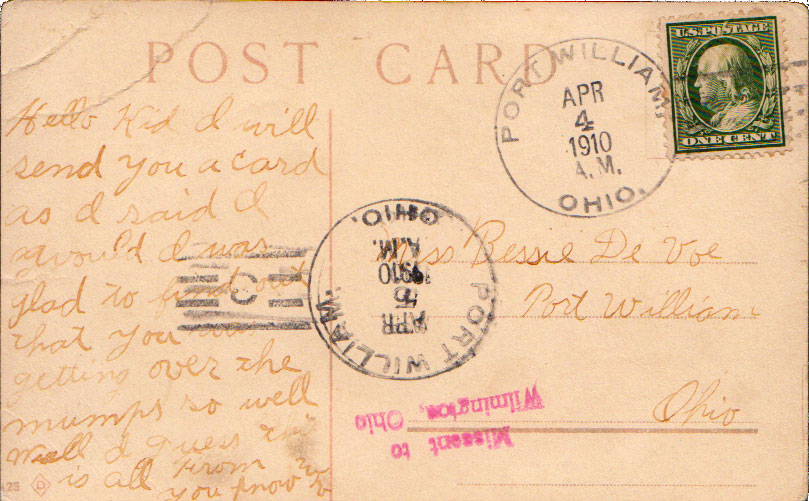 POST CARD
U.S. POSTAGE
ONE CENT
PORT WILLIAM,
APR
4
1910
A.M.
OHIO.
Hello Kid I will
send you a card
as I said I
would I was
glad to find out
that you are
getting over the
mumps so well
Well I guess this
is all From
you know
C
PORT WILLIAM.
APR
5
1910
A.M.
OHIO.
Miss Bessie De Voe
Port William
Ohio
Missent to
Wilmington, Ohio
A28